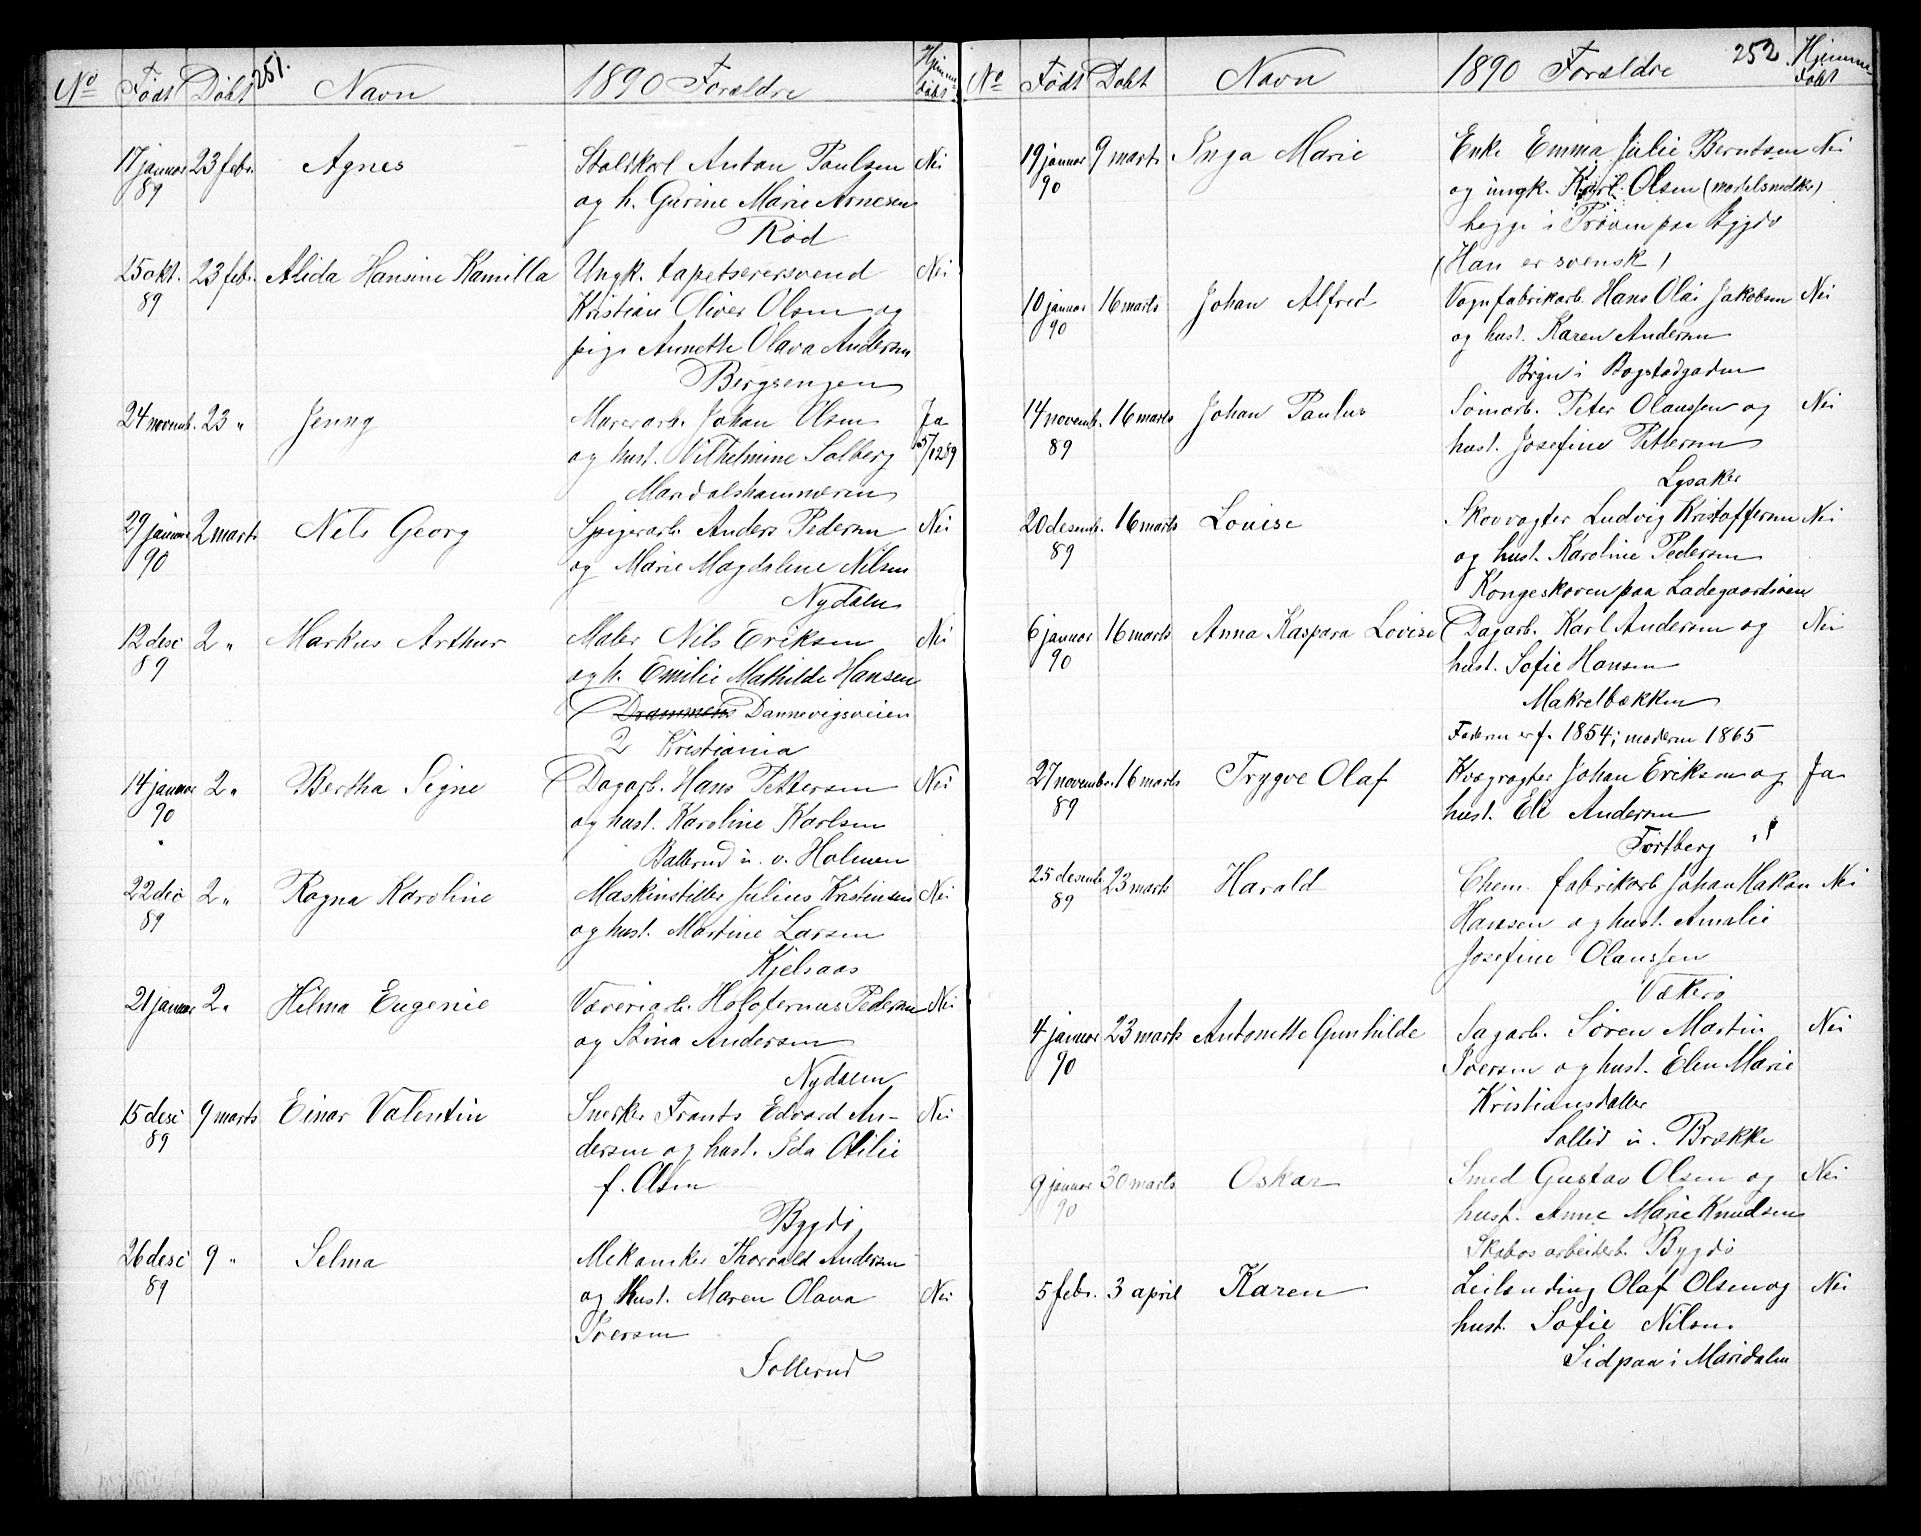 251.
No Født Døbt Navn 1890 Forældre Hjemmedøbt
17 januar 23 febr. Agnes Staldkarl Anton Paulsen Nei
89 og h. Gurine Marie Arnesen
Rød
25 okt. 23 febr. Alida Hansine Kamilla Ungk. tapetserersvend Nei
89 Kristian Oliver Olsen og
pige Annette Olava Andersen
Bergsengen
24 novemb. 23 " Jenny Murerarb. Johan Olsen Ja
og hust. Vilhelmine Solberg 5/12 89
Maridalshammeren
29 januar 2 marts Nels Georg Spigerarb. Anders Pedersen Nei
90 og Marie Magdalene Nilsen
Nydalen
12 desc 2 " Markus Arthur Maler Nils Eriksen Nei
89 og h. Emilie Mathilde Hansen
Drammens Dannevigsveien
2 Kristiania
14 januar 2 " Bertha Signe Dagarb. Hans Pettersen Nei
90 og hust. Karoline Karlsen
Ballerud u. v. Holmen
22 des 2 " Ragna Karoline Maskinstiller Julius Kristensen Nei
89 og hust. Martine Larsen
Kjelsaas
21 januar 2 " Hilma Eugenie Væveriarb. Holofernus Pedersen Nei
og Stina Andersen
Nydalen
15 desc 9 marts Einar Valentin Snerker Frants Edvard An-
Nei
89 dersen og hust. Ida Otilie
f. Olsen
Bygdø
26 desc 9 " Selma Mekaniker Thorvald Andersen
89 og hust. Maren Olava Nei
Iversen
Sollerud
252
No Født Døbt Navn 1890 Forældre Hjemmedøbt
19 januar 9 marts Inga Marie Enke Emma Julie Berntsen Nei
90 og ungk. Karl Olsen
begge i Prøven paa Bygdø
(Han er svensk)
10 januar 16 marts Johan Alfred Vognfabrikarb. Hans Olai Jakobsen Nei
90 og hust. Karen Andersen
i Bogstadgaden
14 novemb. 16 marts Johan Paulus Tømarb. Peter Olaussen og Nei
89 hust. Josefine Pettersen
Lysaker
20 desemb. 16 marts Louise Skovvogter Ludvig Kristoffersen Nei
89 og hust. Karoline Pedersen
Kongeskoven paa Ladegaardsøen
6 januar 16 marts Anna Kaspara Lovise Dagarb. Karl Andersen og Nei
90 hust. Sofie Hansen
Makrelbækken
Faderen er f. 1854; moderen 1865
27 novemb. 16 marts Trygve Olaf Kvægrøgter Johan Eriksen og Ja
89 hust. Eli Andersen
Fortberg
25 desemb. 23 marts Harald Chem. fabrikarb Johan Hakon Nei
89 Hansen og hust. Amalie
Josefine Olaussen
Vækerø
4 januar 23 marts Antonette Gunhilde Sagarb. Søren Martin Nei
90 Iversen og hust. Elen Marie
Kristiansdatter
Sollid u. Brække
9 januar 30 marts Oskar Smed Gustav Olsen og Nei
90 hust. Anne Marie Knudsen
Skabos arbeiderb. Bygdø
5 febr. 3 april Karen Leilending Olaf Olsen og Nei
hust. Sofie Nilsen
Sidpaa i Maridalen